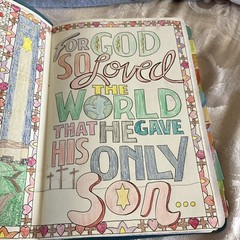 FOR GOD
SO Loved
THE
WORLD
THAT HE GAVE
HIS ONLY
SON...